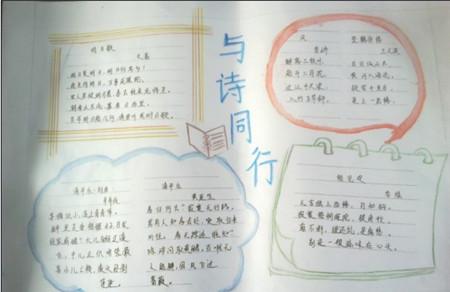 与诗同行
明日歌
文嘉
明日复明日,明日何其多!
我生待明日,万事成蹉跎。
世人若被明日累,春去秋来老将至。
朝看水东流,暮看日西坠。
百年明日能几何,请君听我明日歌。
风
李峤
解落三秋叶
能开二月花
过江千尺浪
入竹万竿斜。
登鹳雀楼
王之涣
白日依山尽
黄河入海流
欲穷千里目
更上一层楼
清平乐·村居
辛弃疾
茅檐低小,溪上青青草。
醉里吴音相媚好,白发
谁家翁媪?大儿锄豆溪
东,中儿正织鸡笼。最
喜小儿亡赖,溪头卧剥
莲蓬。
清平乐
黄庭坚
春归何处?寂寞无行路。
若有人知春去处,唤取归来
同住。春无踪迹谁知?
除非问取黄鹂。百啭无
人能解,因风飞过
蔷薇。
相见欢
李煜
无言独上西楼,月如钩。
寂寞梧桐深院,锁清秋。
剪不断,理还乱,是离愁。
别是一般滋味在心头。